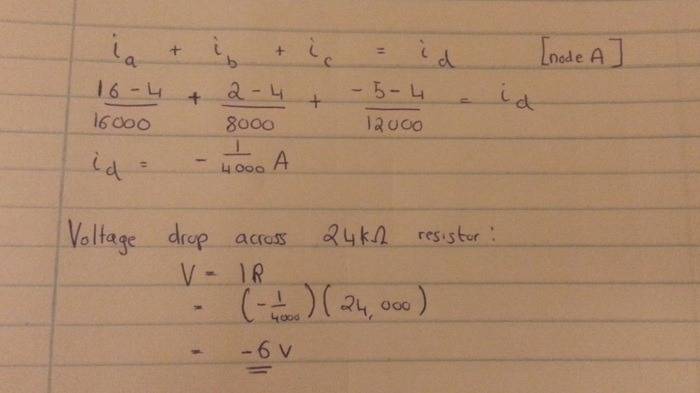 i_a + i_b + i_c = i_d [node A]
16 - 4/16000 + 2 - 4/8000 + - 5 - 4/12000 = i_d
i_d = - 1/4000 A
Voltage drop across 24kΩ resistor:
V = IR
= (- 1/4000)(24,000)
= -6 V